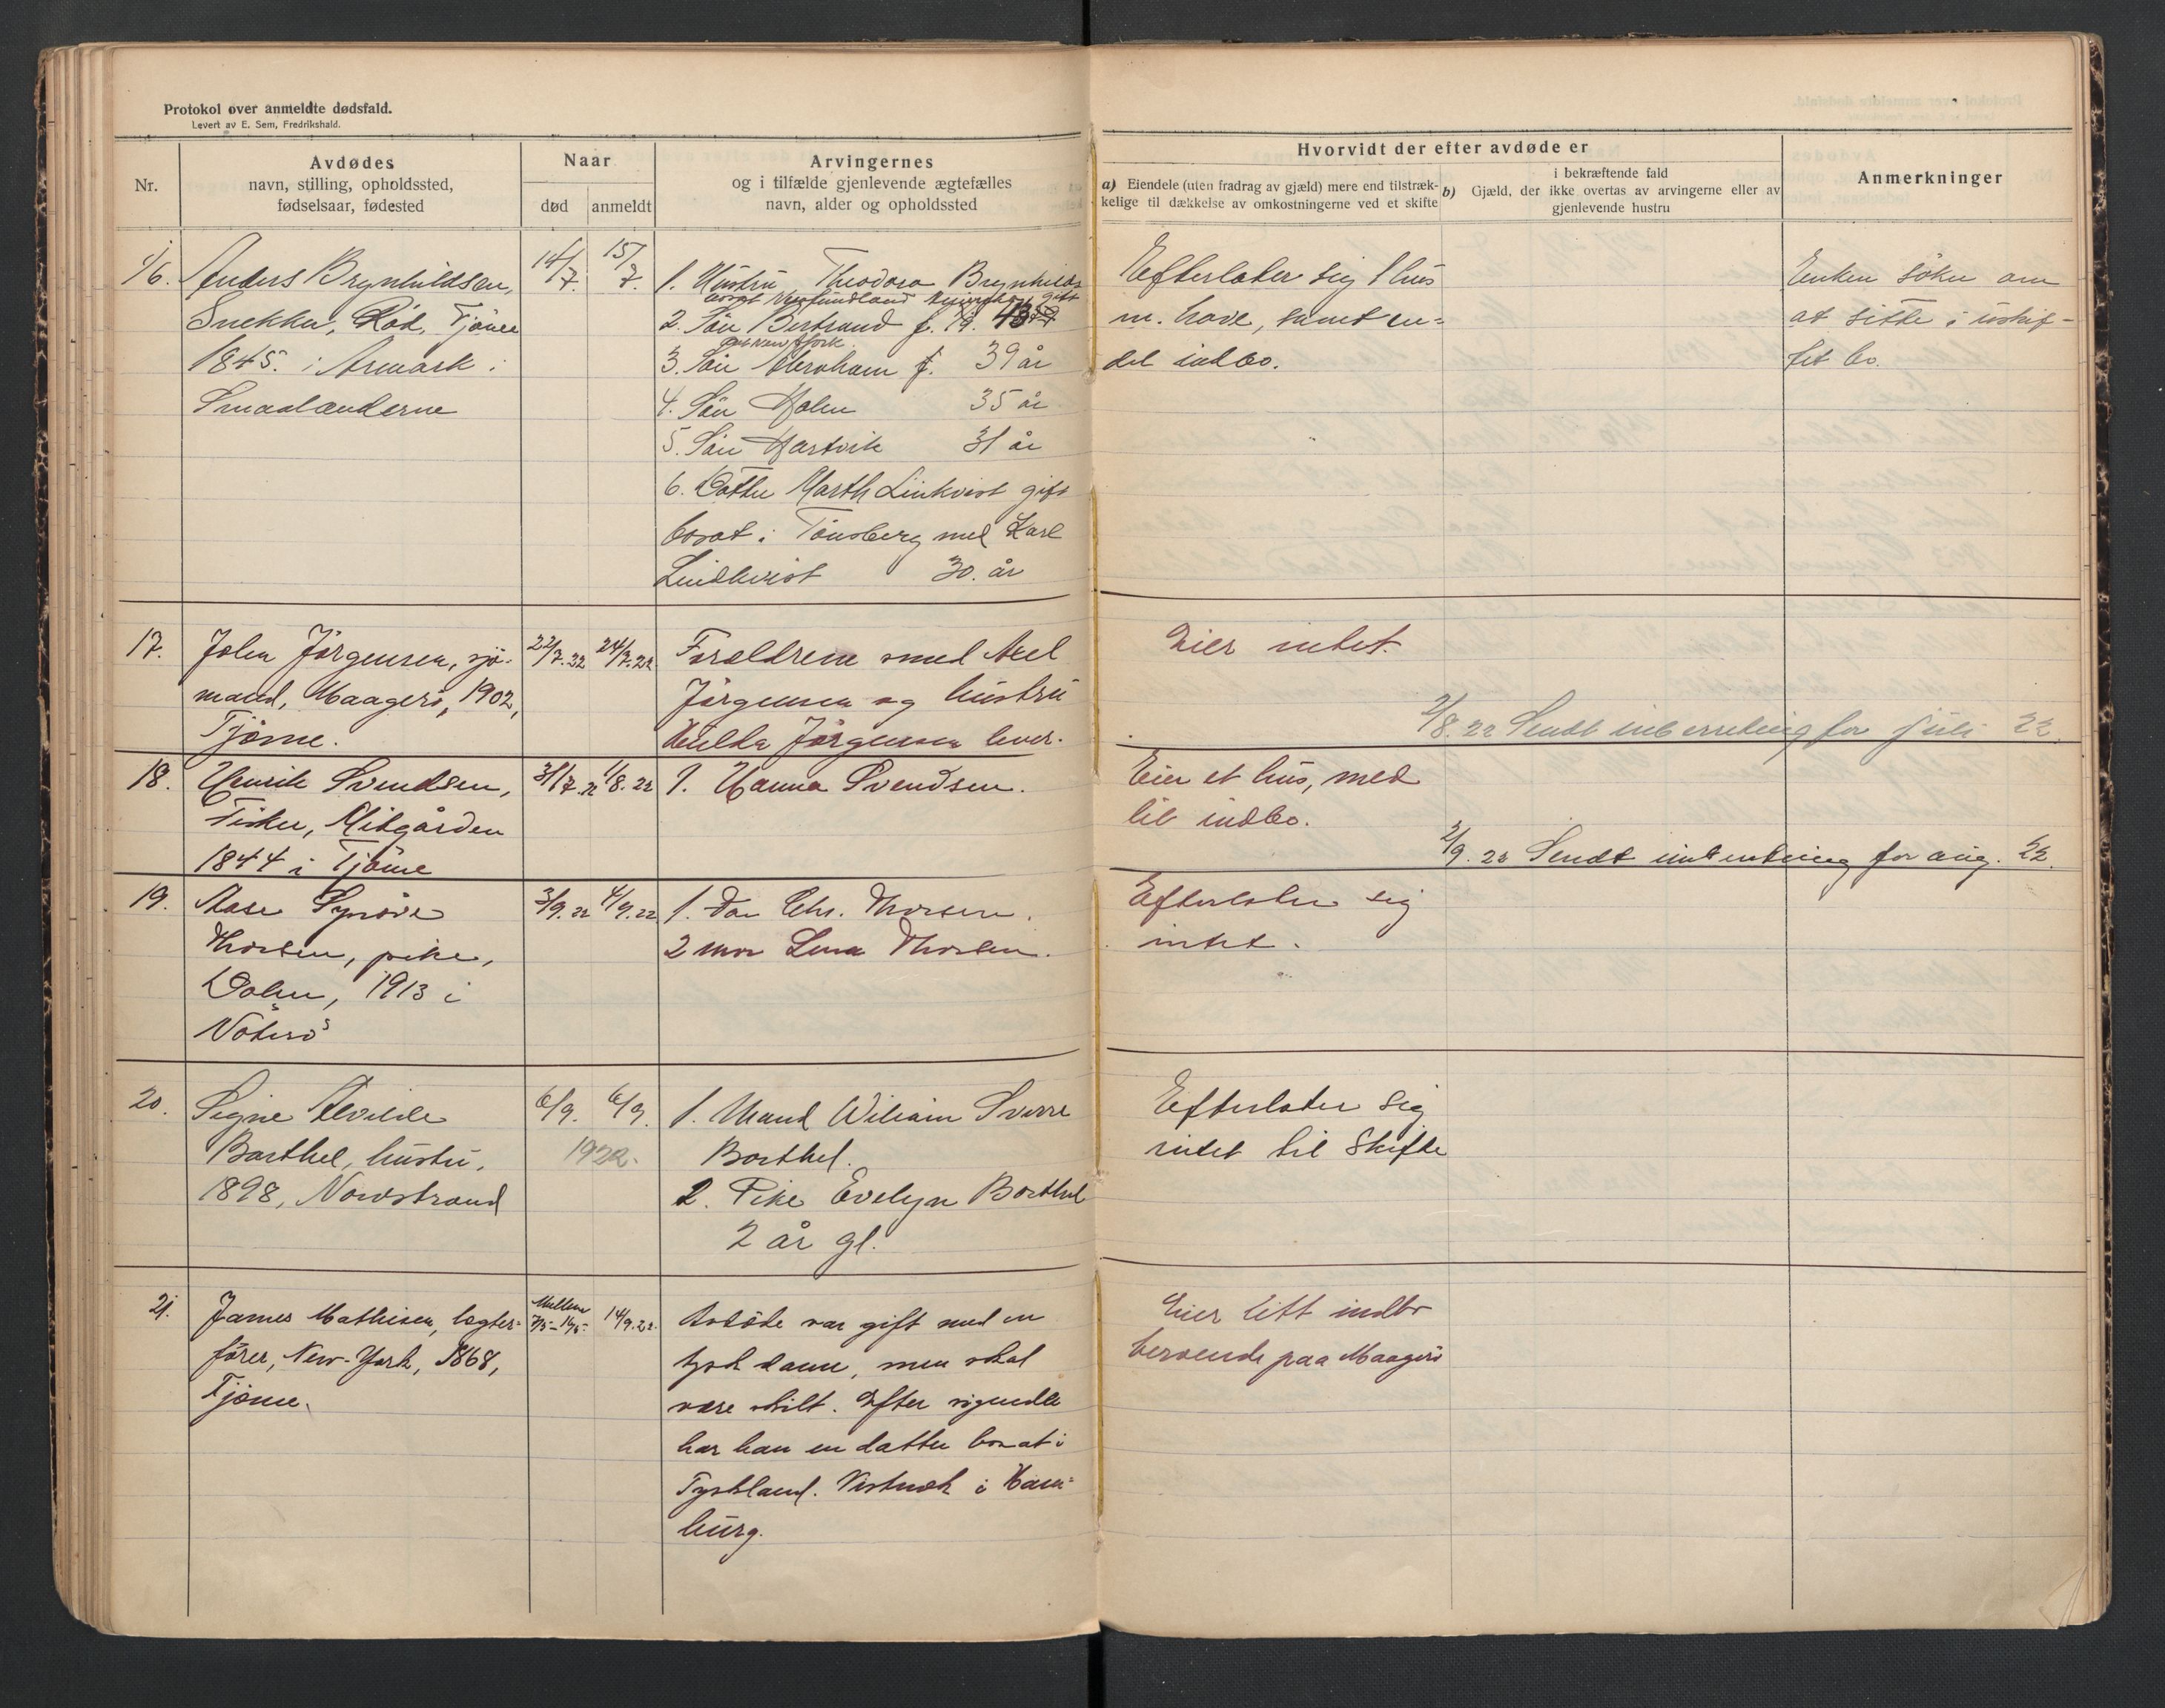 Protokol over anmeldte dødsfald.
Levert av E. Sem, Fredrikshald.
Nr.
Avdødes
navn, stilling, opholdssted,
fødselsaar, fødested
Naar
død
anmeldt
Arvingernes
og i tilfælde gjenlevende ægtefælles
navn, alder og opholdssted
Hvorvidt der efter avdøde er
a) Eiendele (uten fradrag av gjæld) mere end tilstræk-
kelige til dækkelse av omkostningerne ved et skifte
i bekræftende fald
b) Gjæld, der ikke overtas av arvingerne eller av
gjenlevende hustru
Anmerkninger
16.
Anders Brynhildsen,
Snekker, Rød, Tjøme
1845. i Aremark i
Smaalænderne
14/7.
15/7.
1. Hustru Theodora Brynhilds
bosat Newfundland gift
2. Søn Bertrand f. 19. 43
New York
3. Søn Abraham f. 39 år
4. Søn Halen 35 år
5. Søn Hartvik 31 år
6. Datter Marth Linkvist gift
bosat i Tønsberg med Karl
Lindkvist 30. år
Efterlater sig 1 hus
m. have, samt en=
del indbo.
Enken søker om
at sitte i uskif-
tet bo.
17.
John Jørgensen, sjø-
mand, Maagerø, 1902,
Tjøme.
22/7.22
24/7.22
Forældrene med Axel
Jørgensen og hustru
Hulda Jørgensen lever.
Eier intet.
2/8.22 Sendt indberetning for juli 22.
18.
Henrik Svendsen,
Fisker, Mitgården
1844 i Tjøme
31/7.22
1/8.22
1. Hanna Svendsen.
Eier et hus, med
lit indbo.
2/9.22 Sendt indberetning for aug. 22.
19.
Aase Synøve
Thorsen, pike,
Dalen, 1913 i
Nøterø
3/9.22
4/9.22
1. Far Chr. Thorsen.
2 mor Lena Thorsen.
Efterlater sig
intet.
20.
Signe Alvilde
Barthel, hustru,
1898, Nordstrand
6/9.
6/9.
1922.
1. Mand Wiliam Sverre
Barthel.
2. Pike Evelyn Barthel
2 år gl.
Efterlater sig
intet til Skifte
21.
James Mathisen, lægter=
fører, New-York, 1868,
Tjøme.
Mellem
7/5-16/5-
14/9.22.
Avdøde var gift med en
tysk dame, men skal
være skilt. Efter sigende
har han en datter bosat i
Tyskland. Vistnok i Ham=
burg.
Eier litt indbo
beroende paa Maagerø